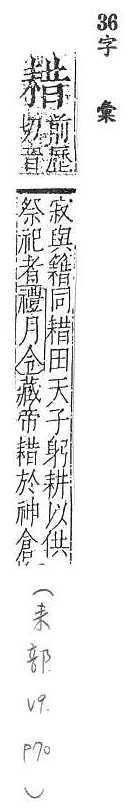 36 字彙
耤
前歷
切音
寂與籍同耤田天子躬耕以供
祭祀者禮月令藏帝耤於神倉
(耒部 V9. P70)